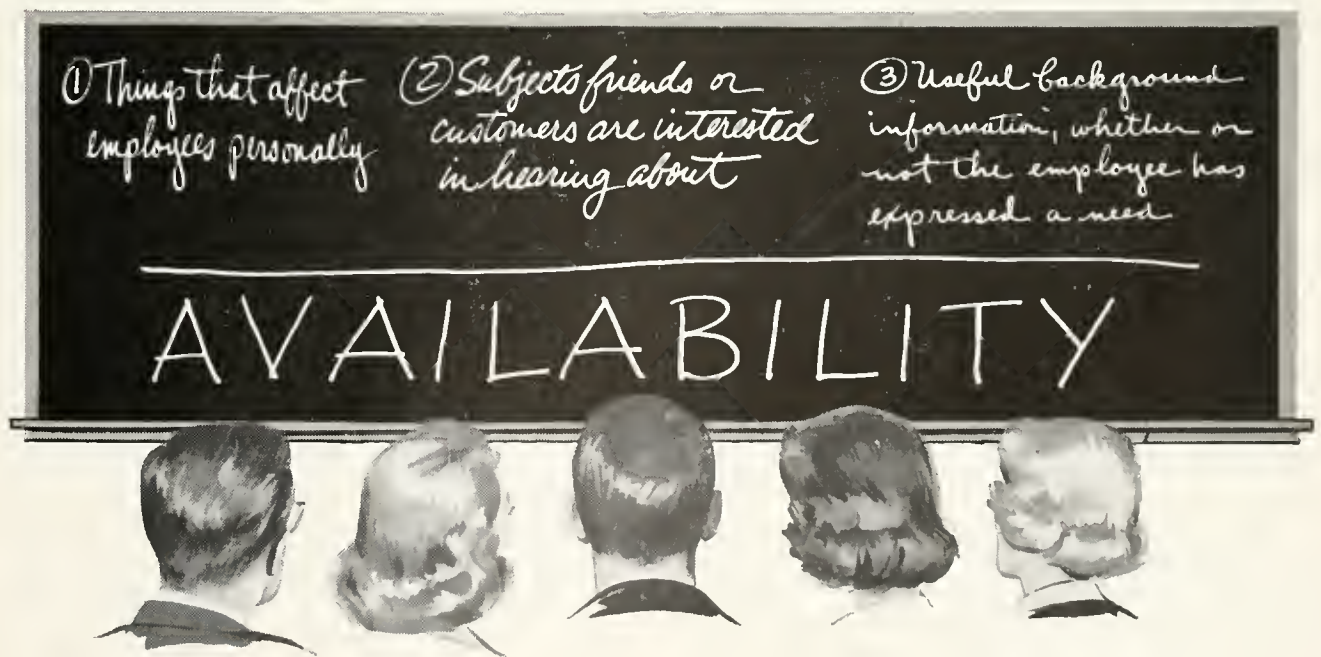 ① Things that affect
employees personally
② Subjects friends or
customers are interested
in hearing about
③ Useful background
information, whether or
not the employee has
expressed a need
AVAILABILITY